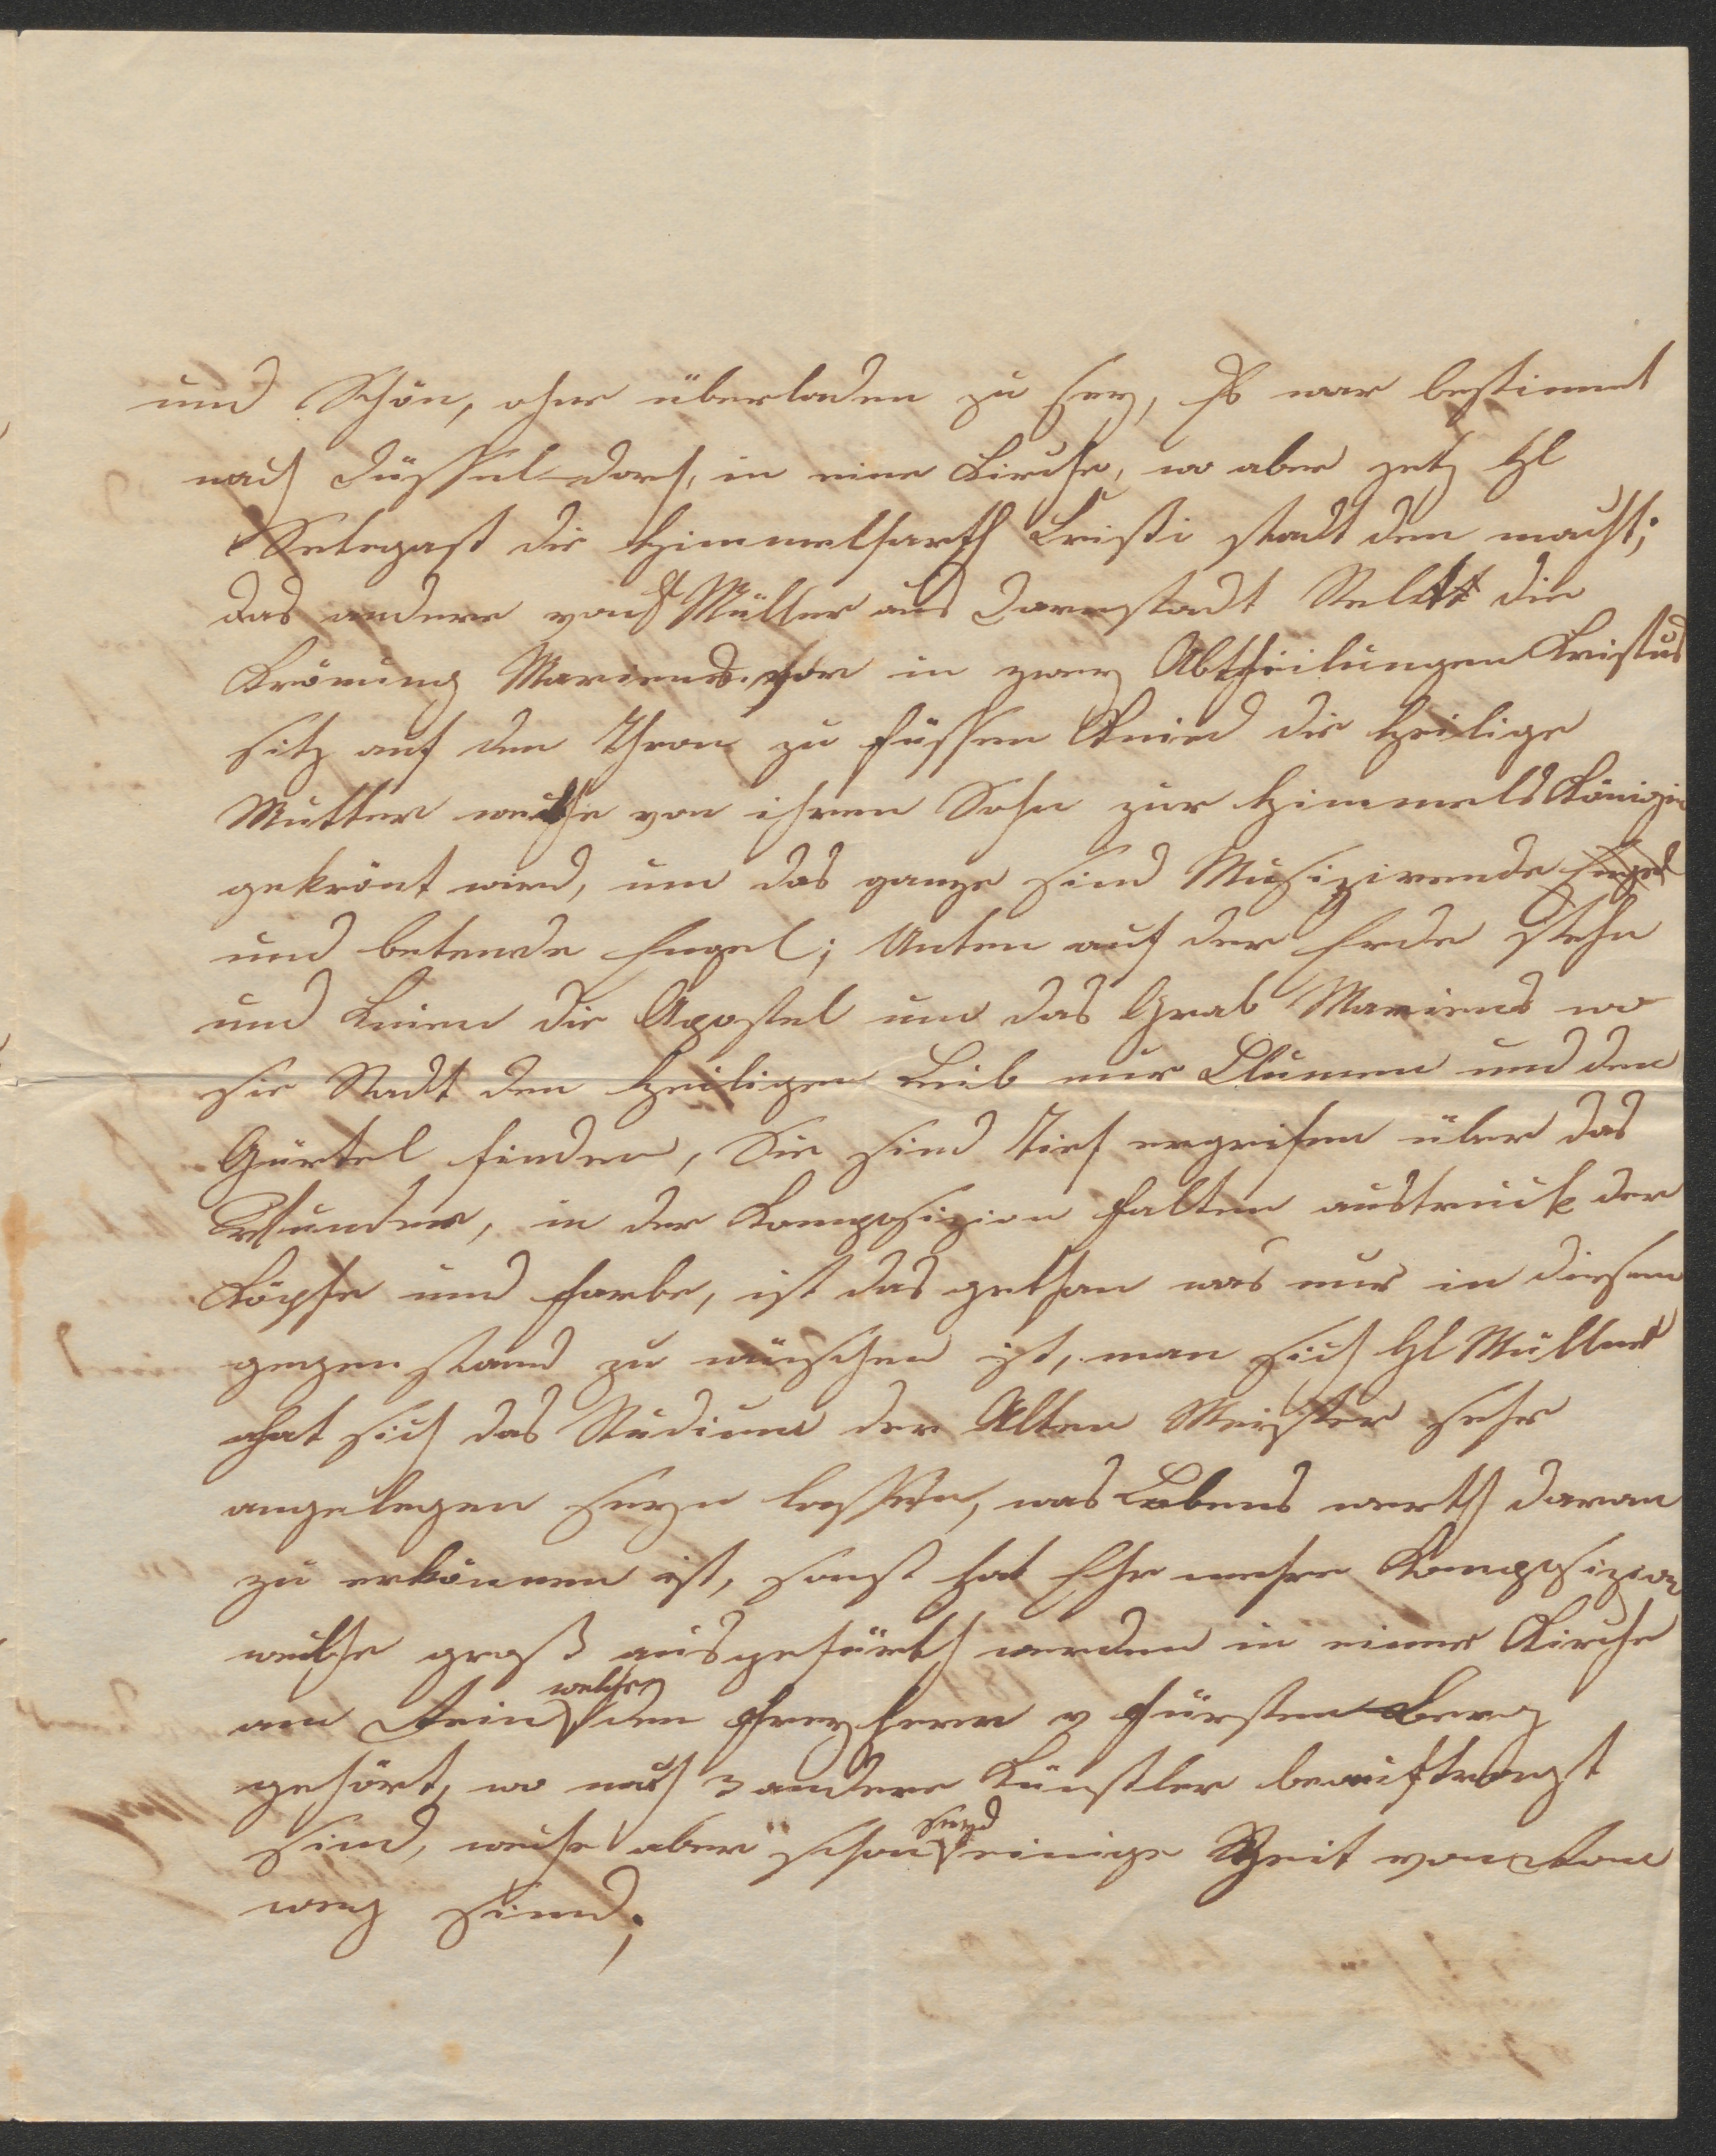 und Schön, ohne überladen zu sey, Es war bestimmt
nach Düssfel-dorf, in eine Kirche, wo aber zetz Hl
Setegast die Himmelfarth Cristi stadt den macht;
das andere von H Müller aus Darmstadt Stellt die
Krönung Mariens vor in zwey Abtheilungen Kristus
sitz auf den Thron zu füssen Knied die Heilige
Mutter welche von ihren Sohn zur Himmels Königin
gekrönt wird, um das ganze sind Musizirende Engel
und betende Engel; Unten auf der Erde stehn
und Knien die Apostel um das Grab Mariens wo
sie Stadt den Heiligen Leib nur Blumen und den
Gürtel finden, Sie sind Tief ergrifen über das
Wunder, in der Komposizion Falten austruck der
Köpfe und Farbe, ist das gethan was nur in diesem
gegen stand zu wünschen ist, man sich Hl Müller
hat sich das Studium der Alten Meister sehr
angelegen seyn lassen, was Lobens werth daran
zu erkönnen ist, sonst hat Ehr mehre Komposizion
welche groß ausgefürth werden in einer Kirche
am Rein welche den Freyherr v Fürsten-Berg
gehört, wo noch 3 andere Künstler beauiftragt
sind, welche aber schon seyd einige Zeit von Rom
weg sind;